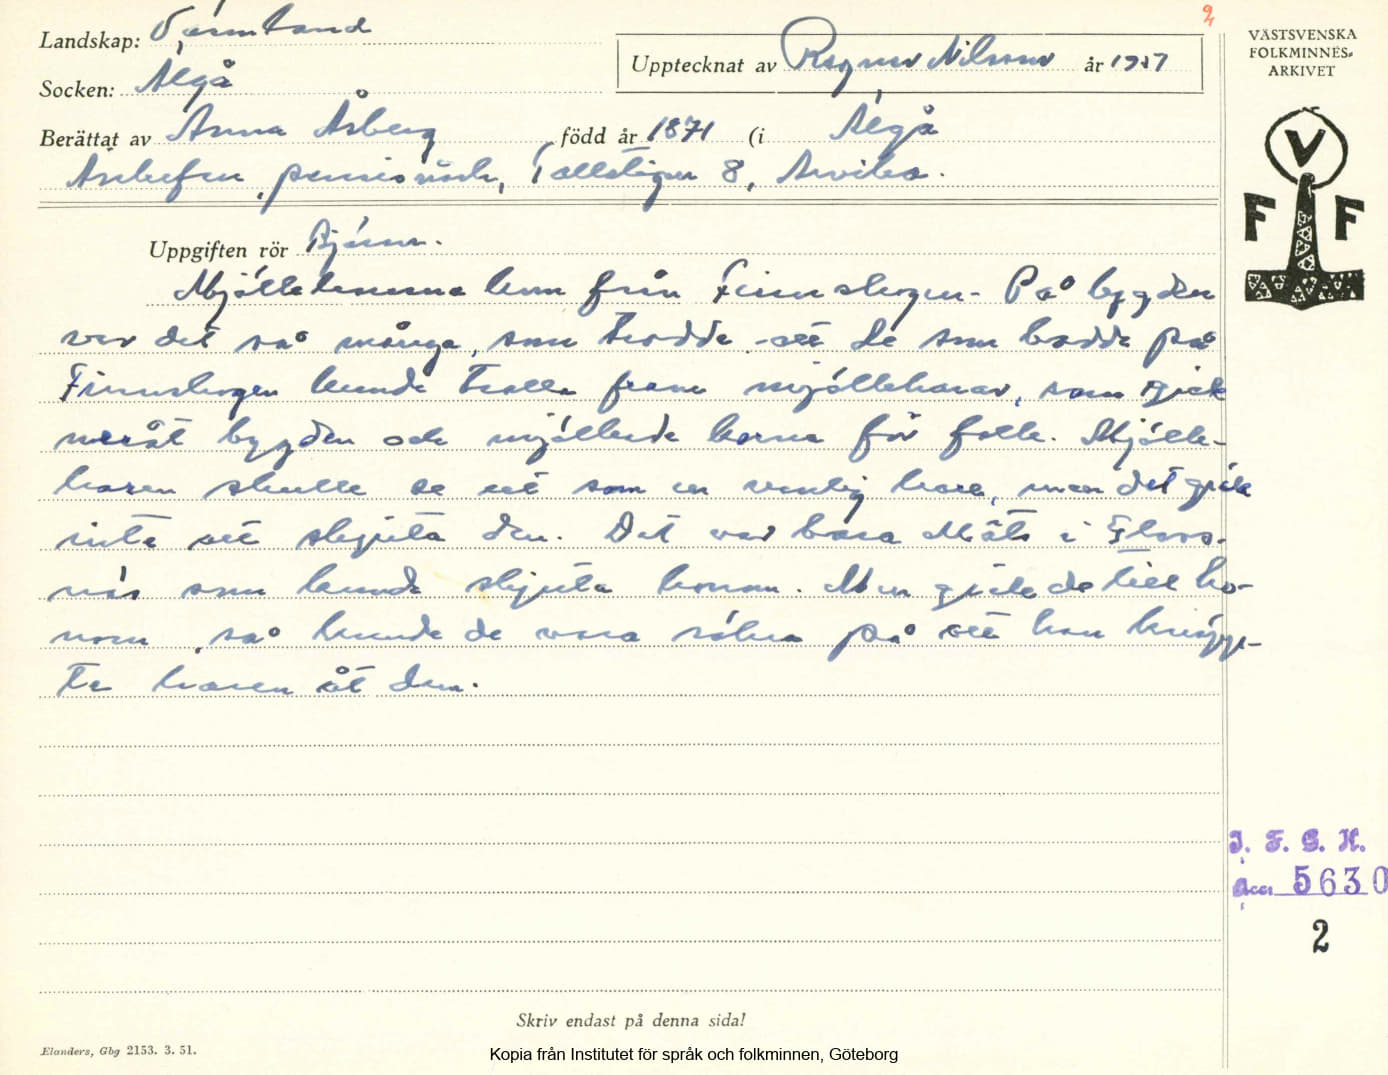 2
Landskap: Värmland
Socken: Älgå
Upptecknat av Ragnar Nilsson år 1957
VÄSTSVENSKA
FOLKMINNES-
ARKIVET
Berättat av Anna Åsberg född år 1871 (i Älgå
pensionärh, Tallstigen 8, Arvika.
V
F F
Uppgiften rör Bjäran.
Mjölkhararna kom från Finnskogen. På bygden
var det så många, som trodde att de som bodde på
Finnskogen kunde trolla fram mjölkharar, som gick
neråt bygden och mjölkade korna för folk. Mjölk-
haren skulle se ut som en vanlig hare, men det gick
inte att skjuta den. Det var bara Mats i Flogs-
näs som kunde skjuta honom. Men gick de till ho-
nom, så kunde de vara säkra på att han knäpp-
te haren åt dem.
J. F. G. H.
Acc. 5630
2
Skriv endast på denna sida!
Elanders, Gbg 2153. 3. 51.
Kopia från Institutet för språk och folkminnen, Göteborg